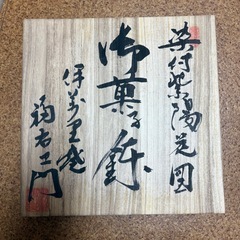 染付紫陽花図
御菓子鉢
伊万里焼
右エ門